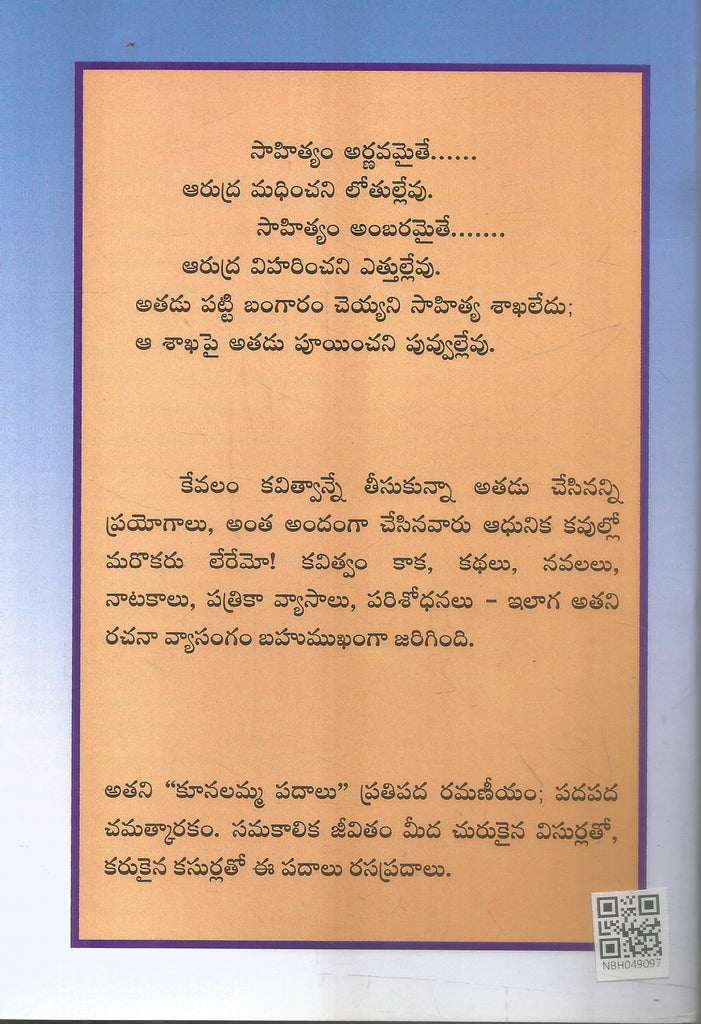 సాహిత్యం అర్ణవమైతే......
ఆరుద్ర మధించని లోతుల్లేవు.
సాహిత్యం అంబరమైతే.......
ఆరుద్ర విహరించని ఎత్తుల్లేవు.
అతడు పట్టి బంగారం చెయ్యని సాహిత్య శాఖలేదు;
ఆ శాఖపై అతడు పూయించని పువ్వుల్లేవు.
కేవలం కవిత్వాన్నే తీసుకున్నా అతడు చేసినన్ని
ప్రయోగాలు, అంత అందంగా చేసినవారు ఆధునిక కవుల్లో
మరొకరు లేరేమో! కవిత్వం కాక, కథలు, నవలలు,
నాటకాలు, పత్రికా వ్యాసాలు, పరిశోధనలు – ఇలాగ అతని
రచనా వ్యాసంగం బహుముఖంగా జరిగింది.
అతని “కూనలమ్మ పదాలు” ప్రతిపద రమణీయం; పదపద
చమత్కారకం. సమకాలిక జీవితం మీద చురుకైన విసుర్లతో,
కరుకైన కసుర్లతో ఈ పదాలు రసప్రదాలు.
NBH049097